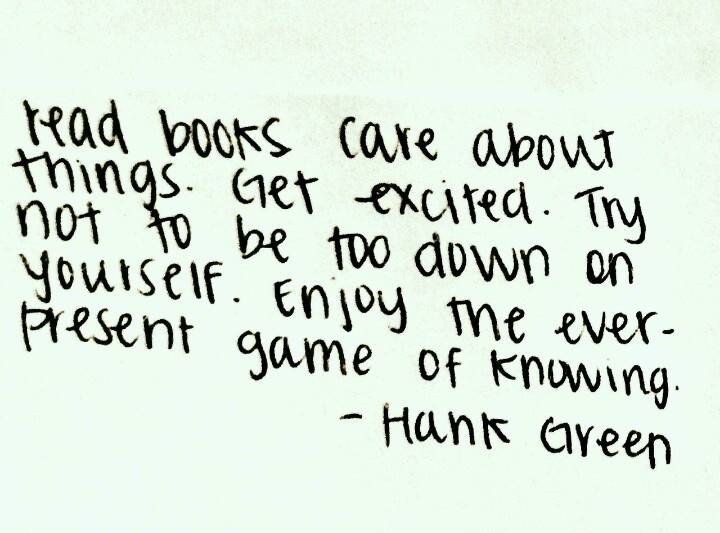 read books care about
things. Get excited. Try
not to be too down on
yourself. Enjoy the ever-
present game of knowing.
- Hank Green